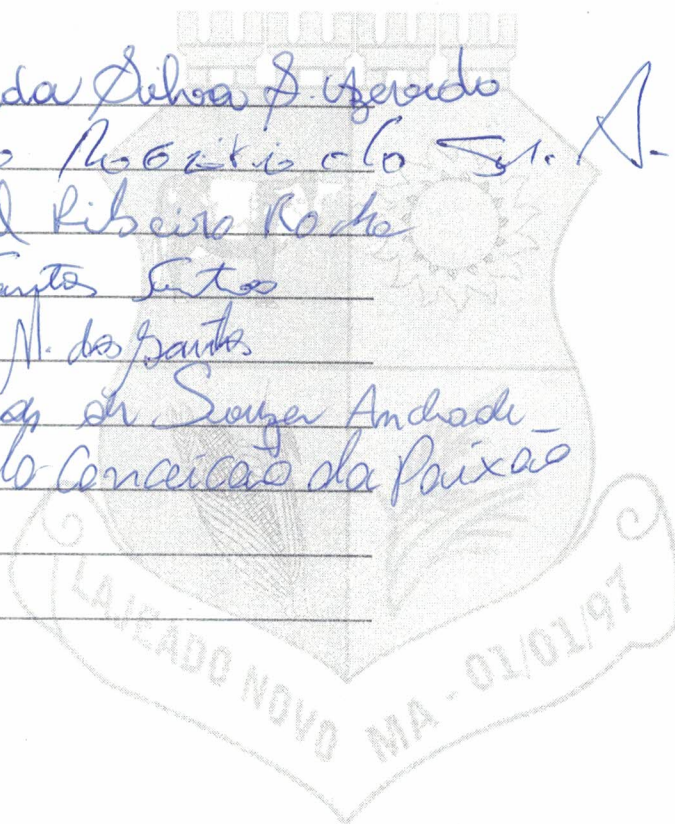 da Silva S. Azevedo
do
l Ribeiro Rocha
Santos Santos
N. dos Santos
de Souza Andrade
Conceicão da Paixão
LAJEADO NOVO MA - 01/01/97